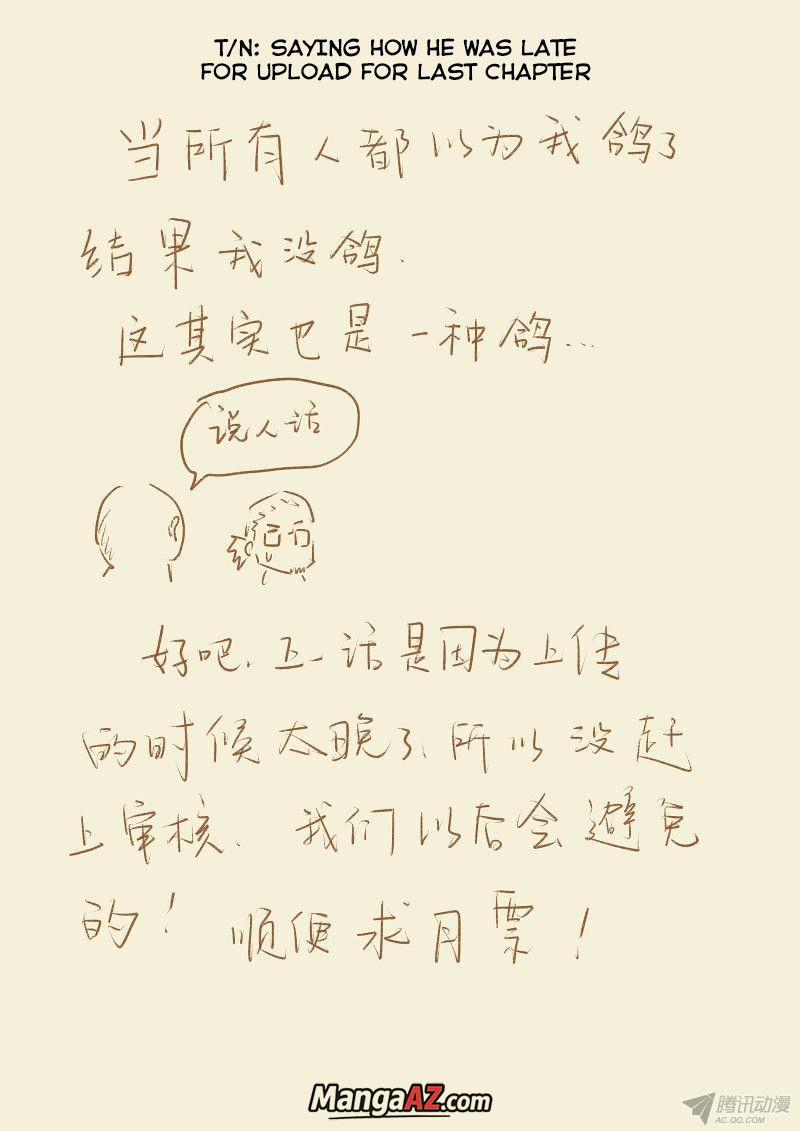 T/N: SAYING HOW HE WAS LATE
FOR UPLOAD FOR LAST CHAPTER
当所有人都以为我鸽了
结果我没鸽.
这其实也是一种鸽...
说人话
好吧、上一话是因为上传
的时候太晚了、所以没赶
上审核、我们以后会避免
的！顺便求月票！
MangaAZ.com
腾讯动漫
AC.QQ.COM